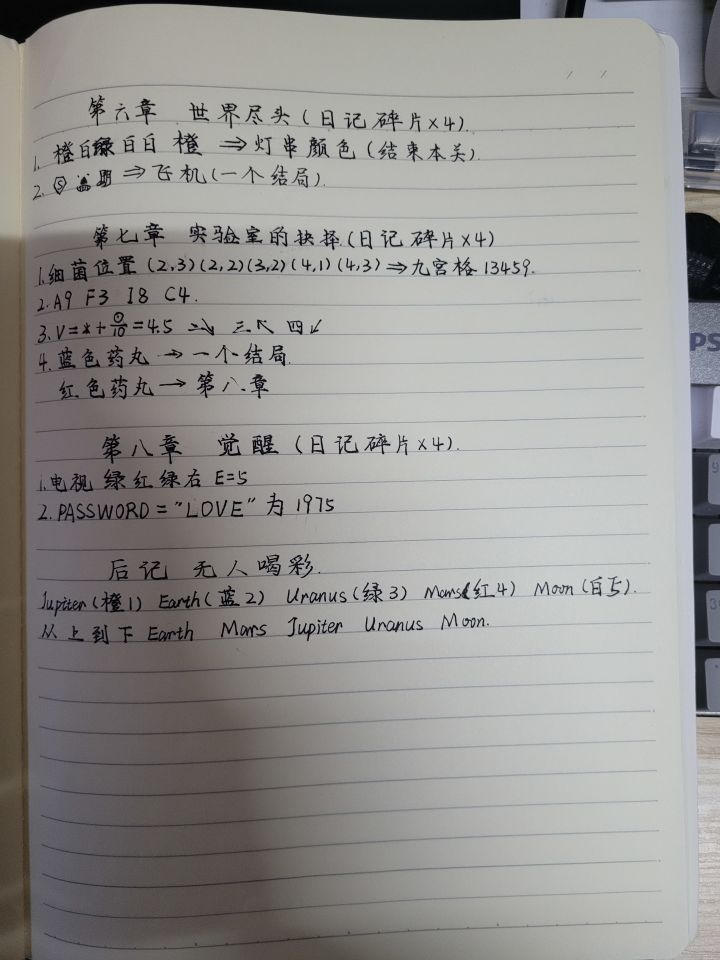 第六章 世界尽头(日记碎片×4).
1. 橙白绿白白 橙 ⇒灯串颜色(结束本关).
2. ⇒飞机(一个结局).
第七章 实验室的抉择(日记碎片×4)
1.细菌位置 (2,3)(2,2)(3,2)(4,1)(4,3)⇒九宫格 13459.
2.A9 F3 I8 C4.
3.V=*+⊙/10=4.5 二↘ 三↖ 四↙
4.蓝色药丸 → 一个结局.
红色药丸 → 第八章
第八章 觉醒(日记碎片×4).
1.电视 绿红绿右 E=5
2.PASSWORD="LOVE"为1975
后记 无人喝彩.
Jupiter(橙1) Earth(蓝2) Uranus(绿3) Mars(红4) Moon(白5).
从上到下 Earth Mars Jupiter Uranus Moon.
PS